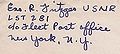 Ens. R. Futyos USNR
LST 281
c/o Fleet Post office
new york, n.y.